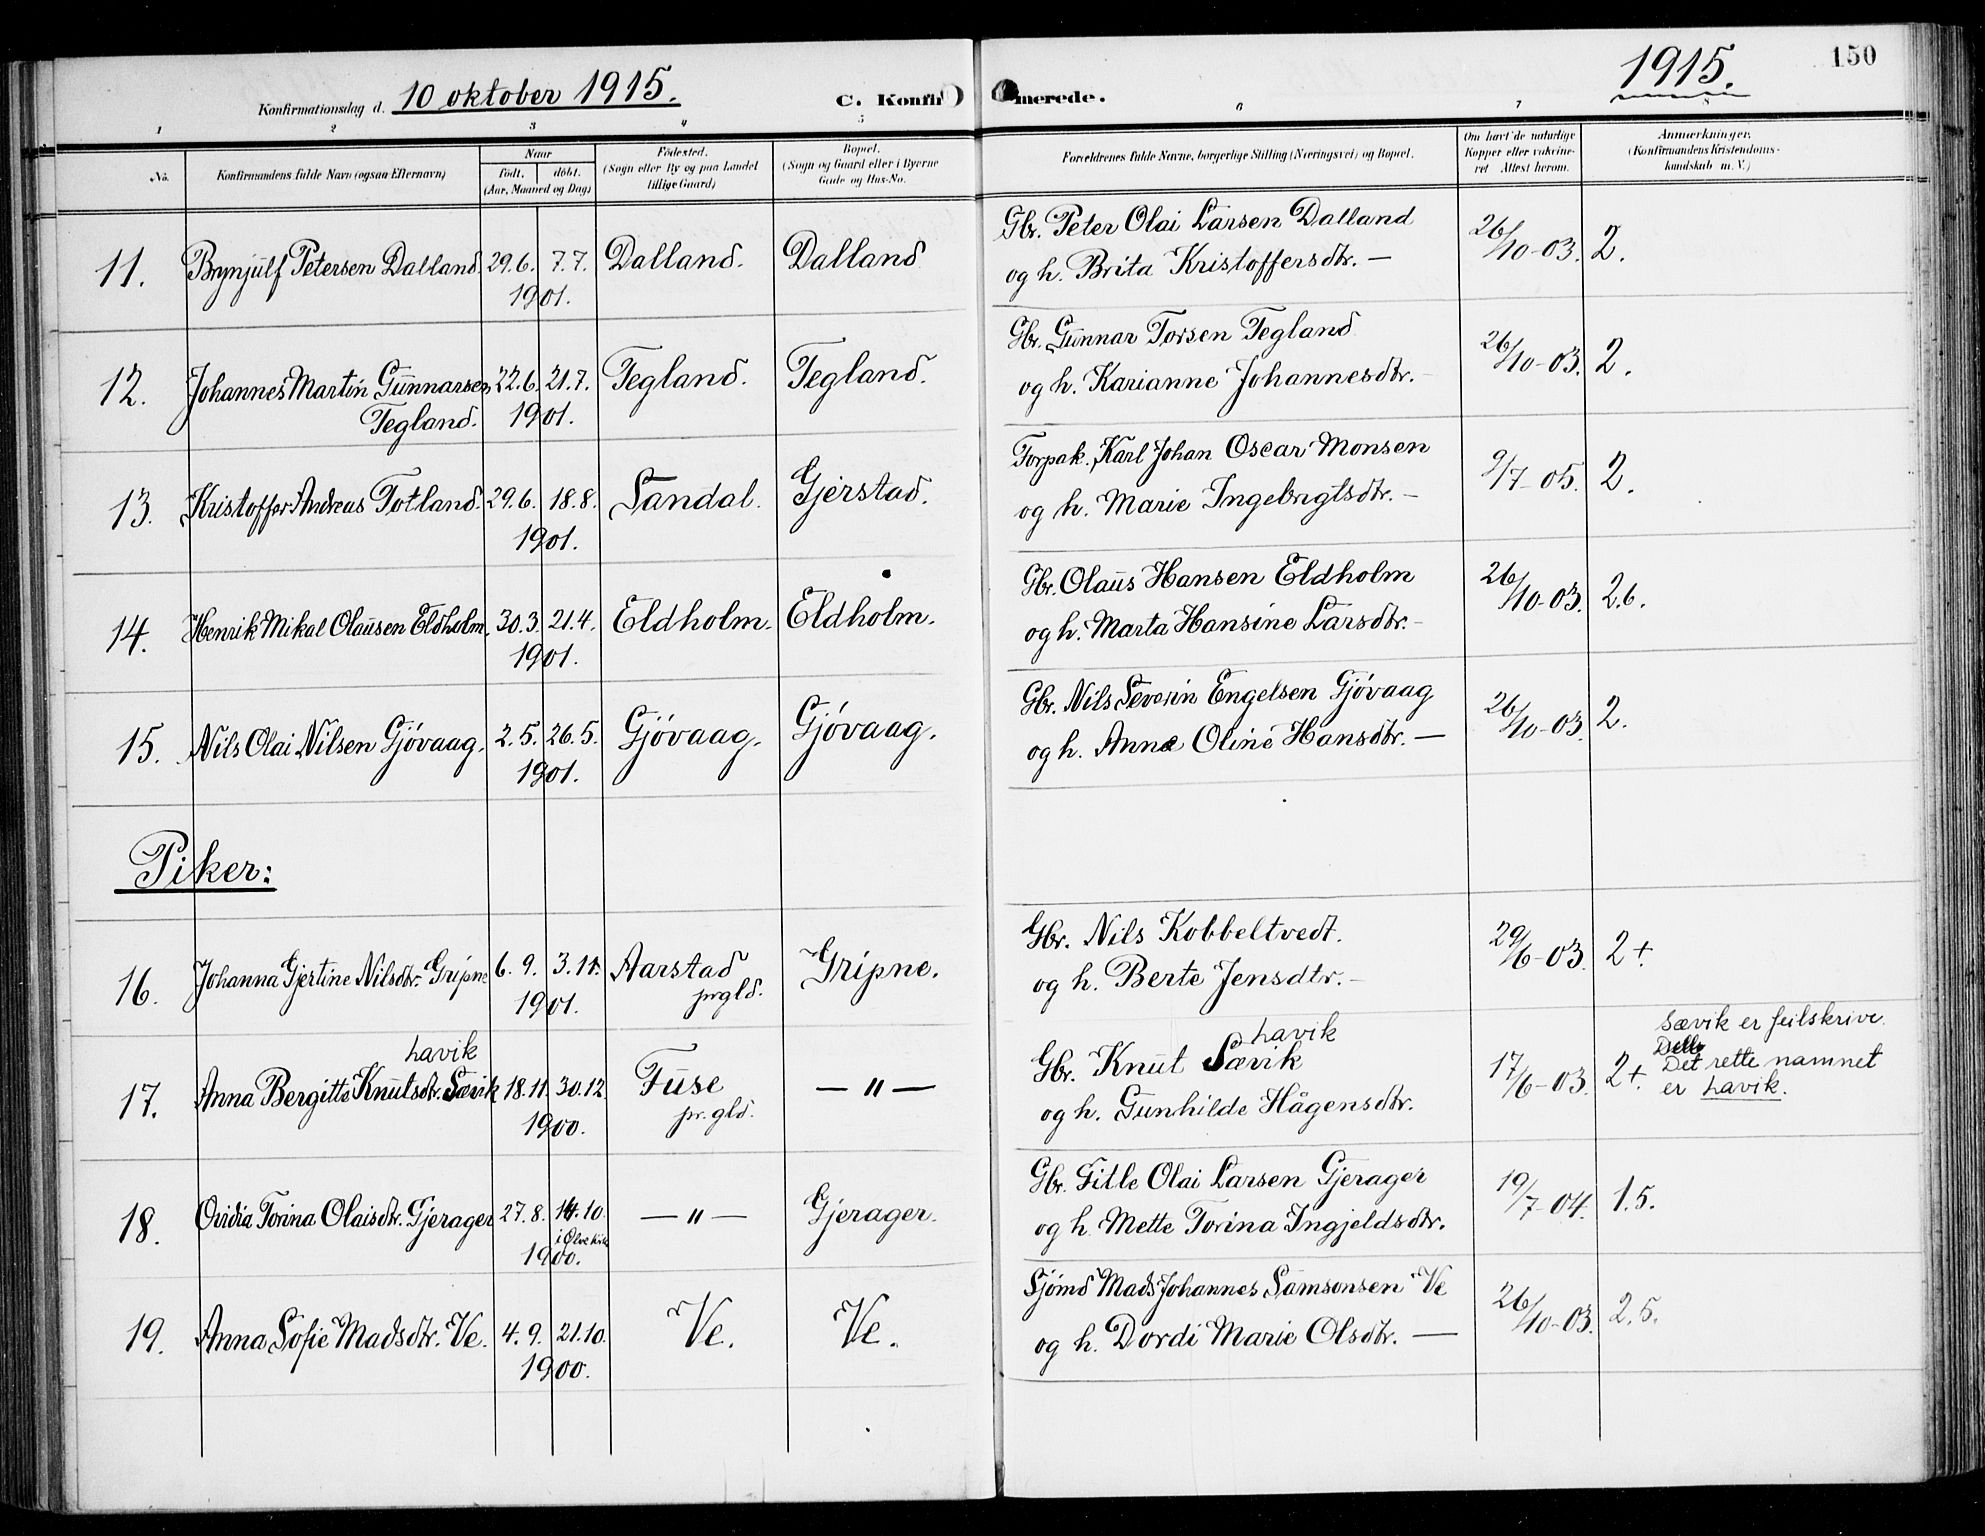 Konfirmationsdag d. 10 oktober 1915. C. Konfirmerede. 1915. 150
1 2 3 4 5 6 7 8
No. Konfirmandens fulde Navn (ogsaa Efternavn) Naar født. døbt. (Aar, Maaned og Dag) Fødested. (Sogn eller By og paa Landet tillige Gaard) Bopæl. (Sogn og Gaard eller i Byerne Gade og Hus-No. Forældrenes fulde Navne, borgerlige Stilling (Næringsvei) og Bopæl. Om havt de naturlige Kopper eller vakcineret Attest herom. Anmerkninger. (Konfirmandens Kristendomskundskab m. V.)
11. Brynjulf Petersen Dalland 29.6. 7.7. 1901. Dalland. Dalland Gbr. Peter Olai Larsen Dalland
og h. Brita Kristoffersdtr. — 26/10-03. 2.
12. Johannes Martin Gunnarsen 22.6. 21.7. Tegland. Tegland. Gbr. Gunnar Torsen Tegland
Tegland. 1901. og h. Karianne Johannesdtr. - 26/10-03. 2.
13. Kristoffer Andreas Totland. 29.6. 18.8. 1901. Sandal. Gjerstad. Forpak. Karl Johan Oscar Monsen
og h. Marie Ingebrigtsdtr. - 9/7-05. 2.
14. Henrik Mikal Olausen Eldholm. 30.3. 21.4. 1901. Eldholm. Eldholm. Gbr. Olaus Hansen Eldholm
og h. Marta Hansine Larsdtr. - 26/10-03. 2.6.
15. Nils Olai Nilsen Gjövaag. 2.5. 26.5. 1901. Gjövaag. Gjövaag. Gbr. Nils Severin Engelsen Gjövaag
og h. Anna Oline Hansdtr. — 26/10-03. 2.
Piker:
16. Johanna Gjertine Nilsdtr. Gripne 6.9. 3.11. 1901. Aarstad prgld. Gripne. Gbr. Nils Kobbeltvedt.
og h. Berte Jensdtr. - 29/6-03. 2+.
Lavik Lavik Sævik er feilskrive.
17. Anna Bergitte Knutsdtr. Sævik 18.11. 30.12. 1900. Fuse pr.gld. — " — Gbr. Knut Sævik
og h. Gunhilde Hågensdtr. 17/6-03. 2+. Det rette namnet
er Lavik.
18. Ovidia Torina Olaisdtr. Gjerager 27.8. 14.10. 1900. — " — Gjerager. Gbr. Title Olai Larsen Gjerager
og h. Mette Torina Ingjeldsdtr. 19/7-04. 1.5.
19. Anna Sofie Madsdtr. Ve. 4.9. 21.10. 1900. Ve. Ve. Sjömd Mads Johannes Samsonsen Ve
og h. Dordi Marie Olsdtr. — 26/10-03. 2.5.